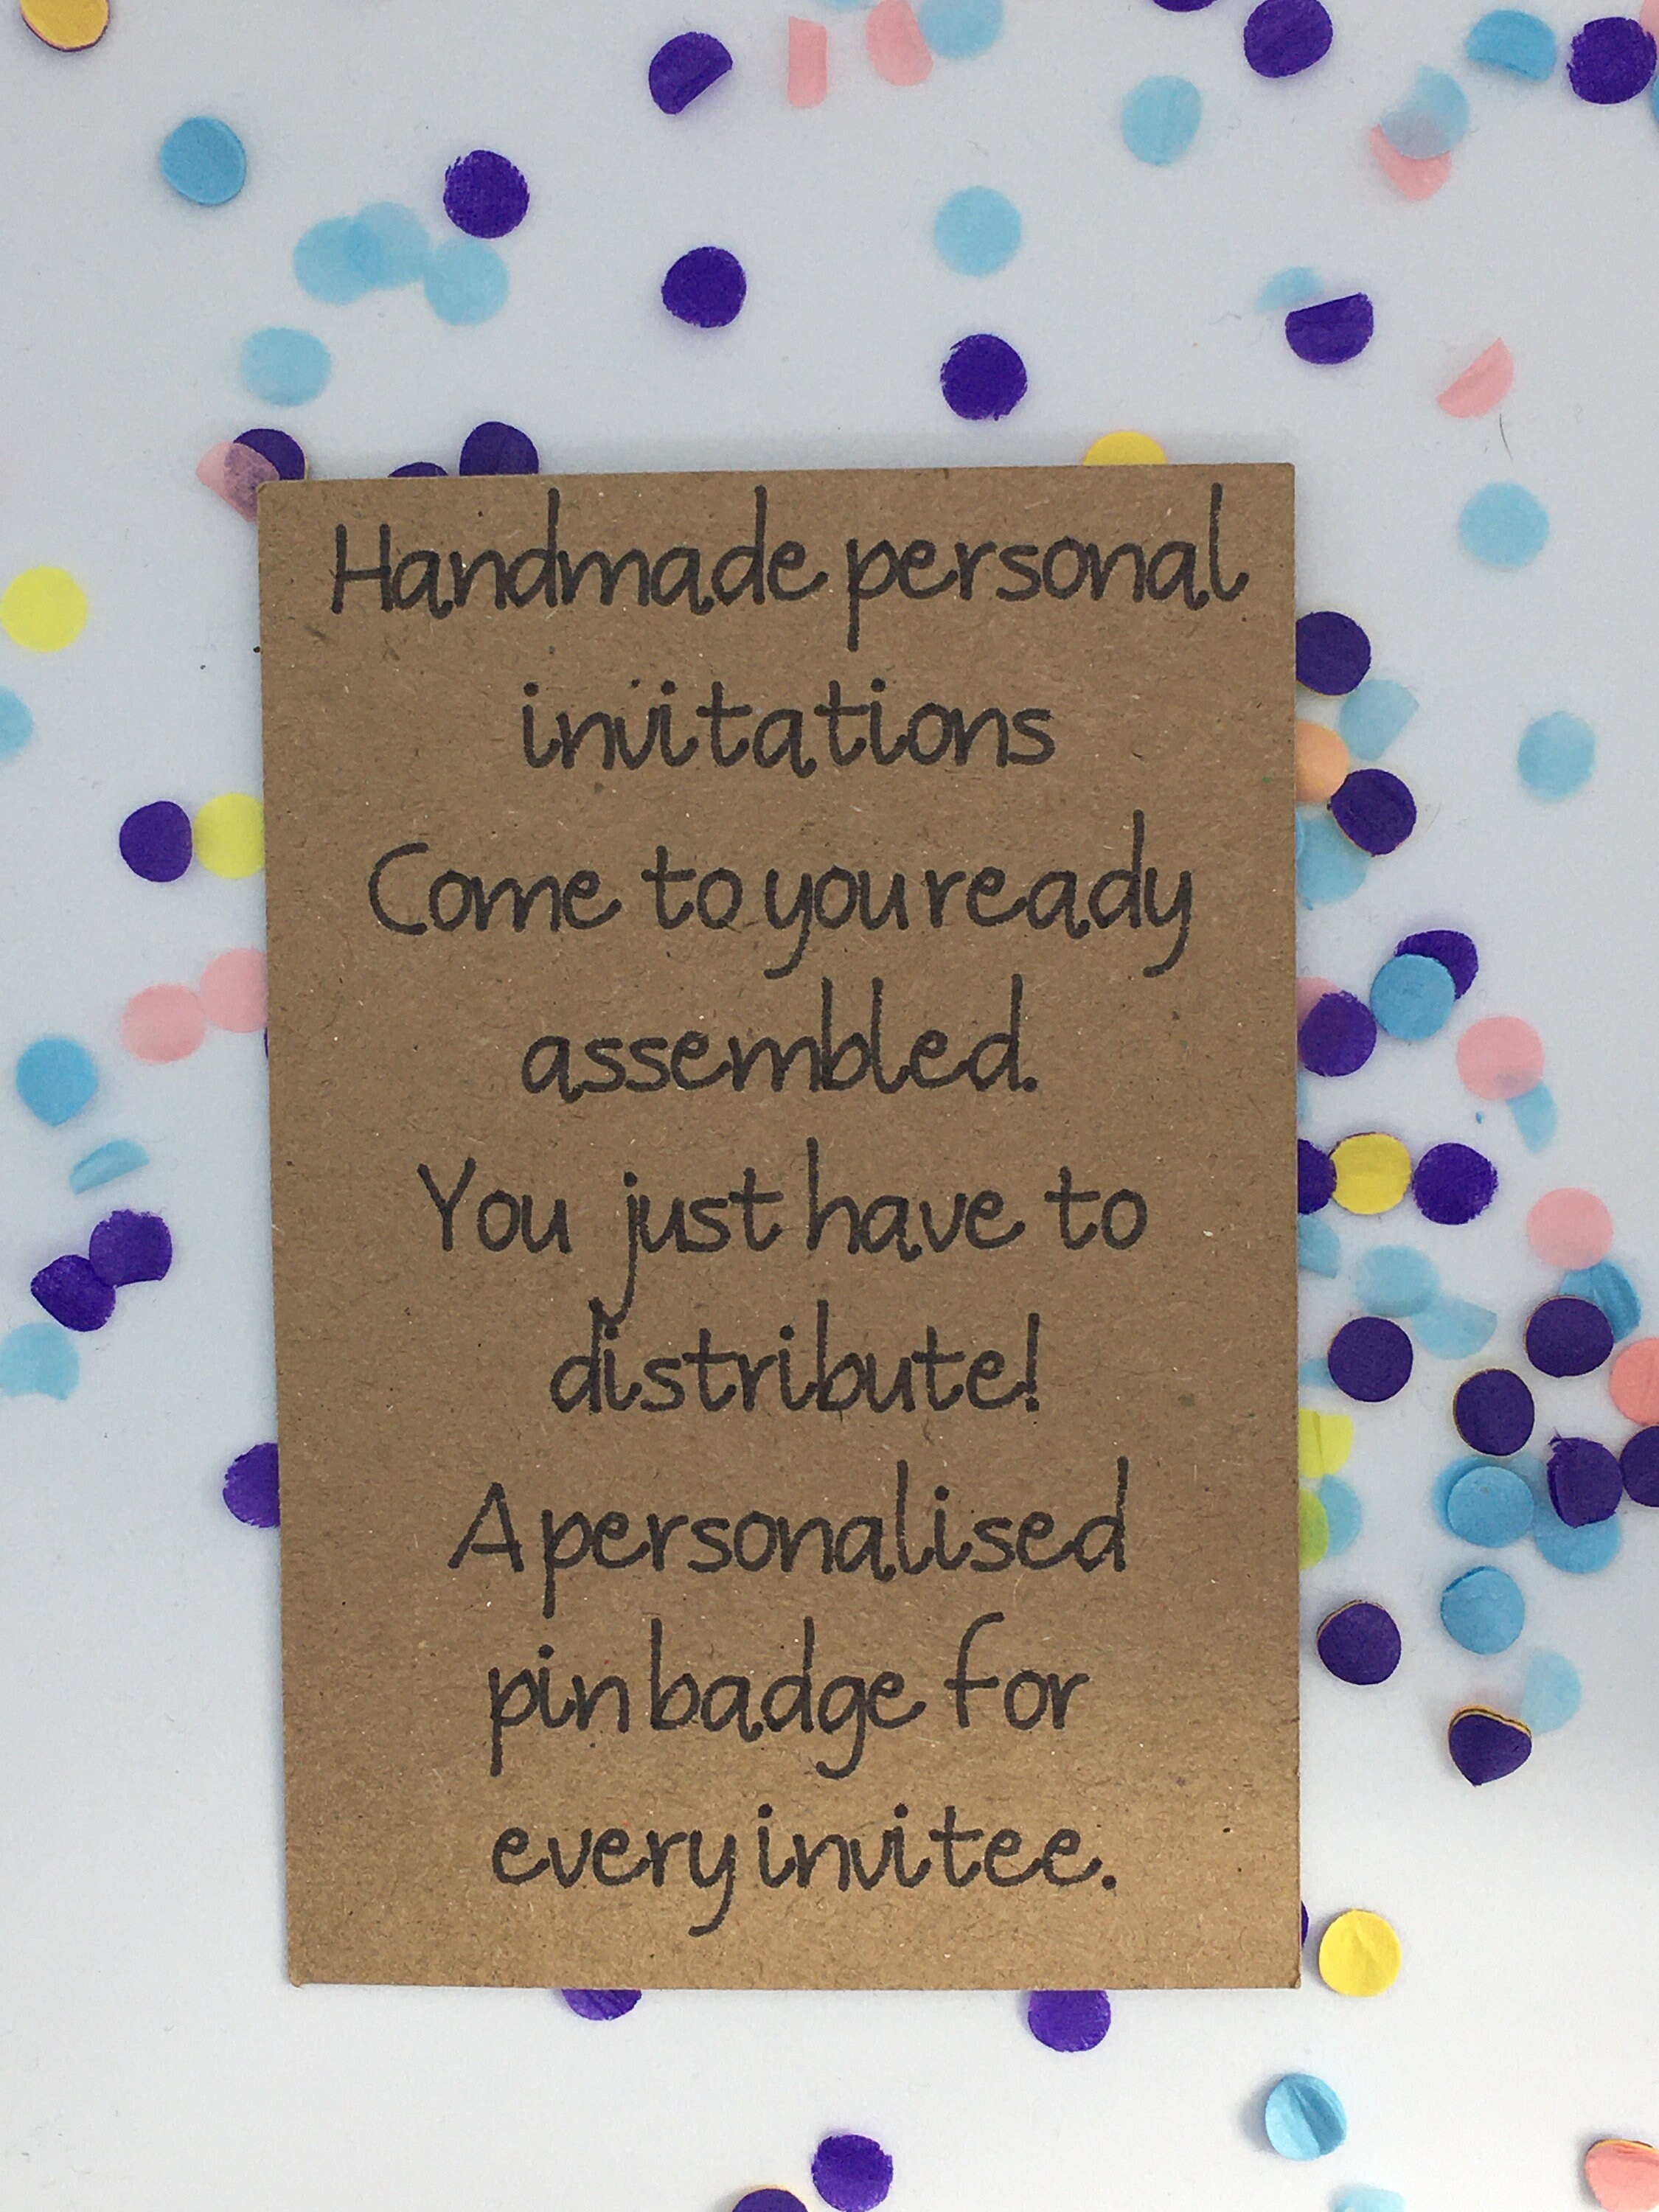 Handmade personal
invitations
Come to you ready
assembled.
You just have to
distribute!
A personalised
pin badge for
every invitee.